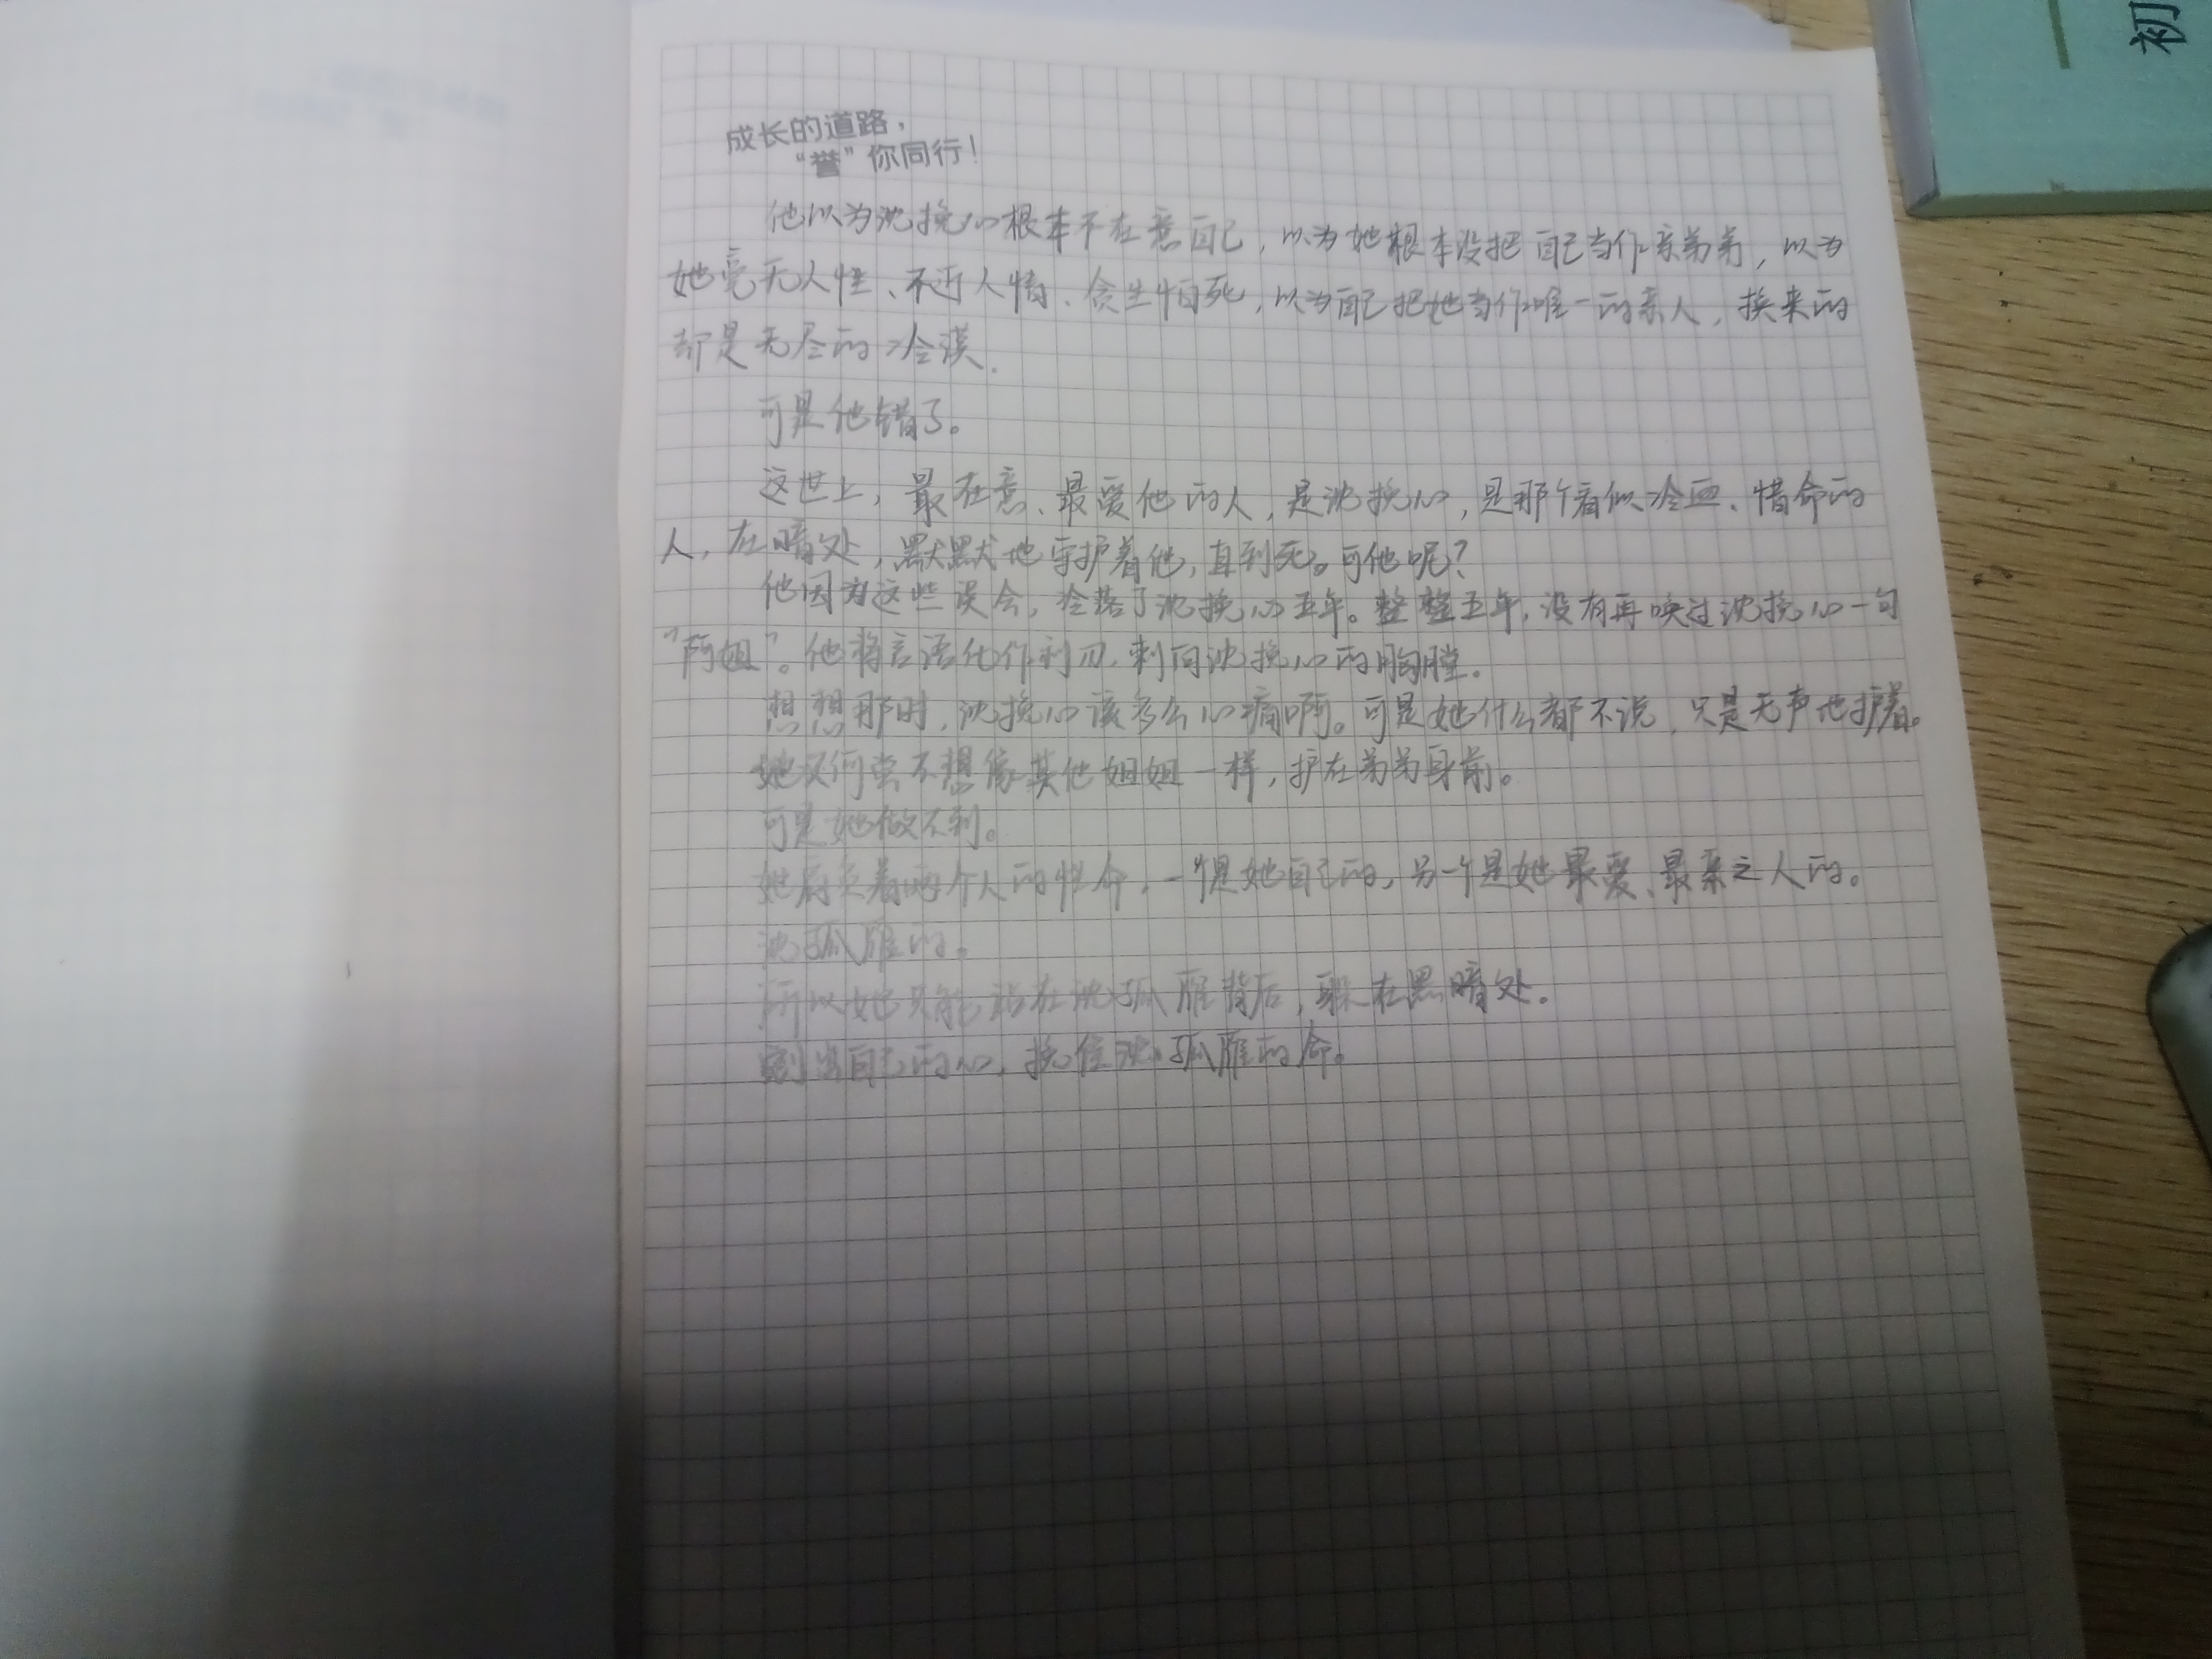 初
成长的道路，
“誉”你同行！
他以为沈挽心根本不在意自己，以为她根本没把自己当作亲弟弟，以为
她毫无人性、不近人情、贪生怕死，以为自己把她当作唯一的亲人，换来的
却是无尽的冷漠.
可是他错了。
这世上，最在意、最爱他的人，是沈挽心，是那个看似冷血、惜命的
人，在暗处，默默地守护着他，直到死。可他呢？
他因为这些误会，冷落了沈挽心五年。整整五年，没有再唤过沈挽心一句
“阿姐”。他将言语化作利刃，刺向沈挽心的胸膛。
想想那时，沈挽心该多么心痛啊。可是她什么都不说，只是无声地护着。
她又何尝不想像其他姐姐一样，护在弟弟身前。
可是她做不到。
她肩负着两个人的性命，一个是她自己的，另一个是她最爱、最亲之人的。
沈孤雁的。
所以她只能站在沈孤雁背后，躲在黑暗处。
割出自己的心，挽住沈孤雁的命。